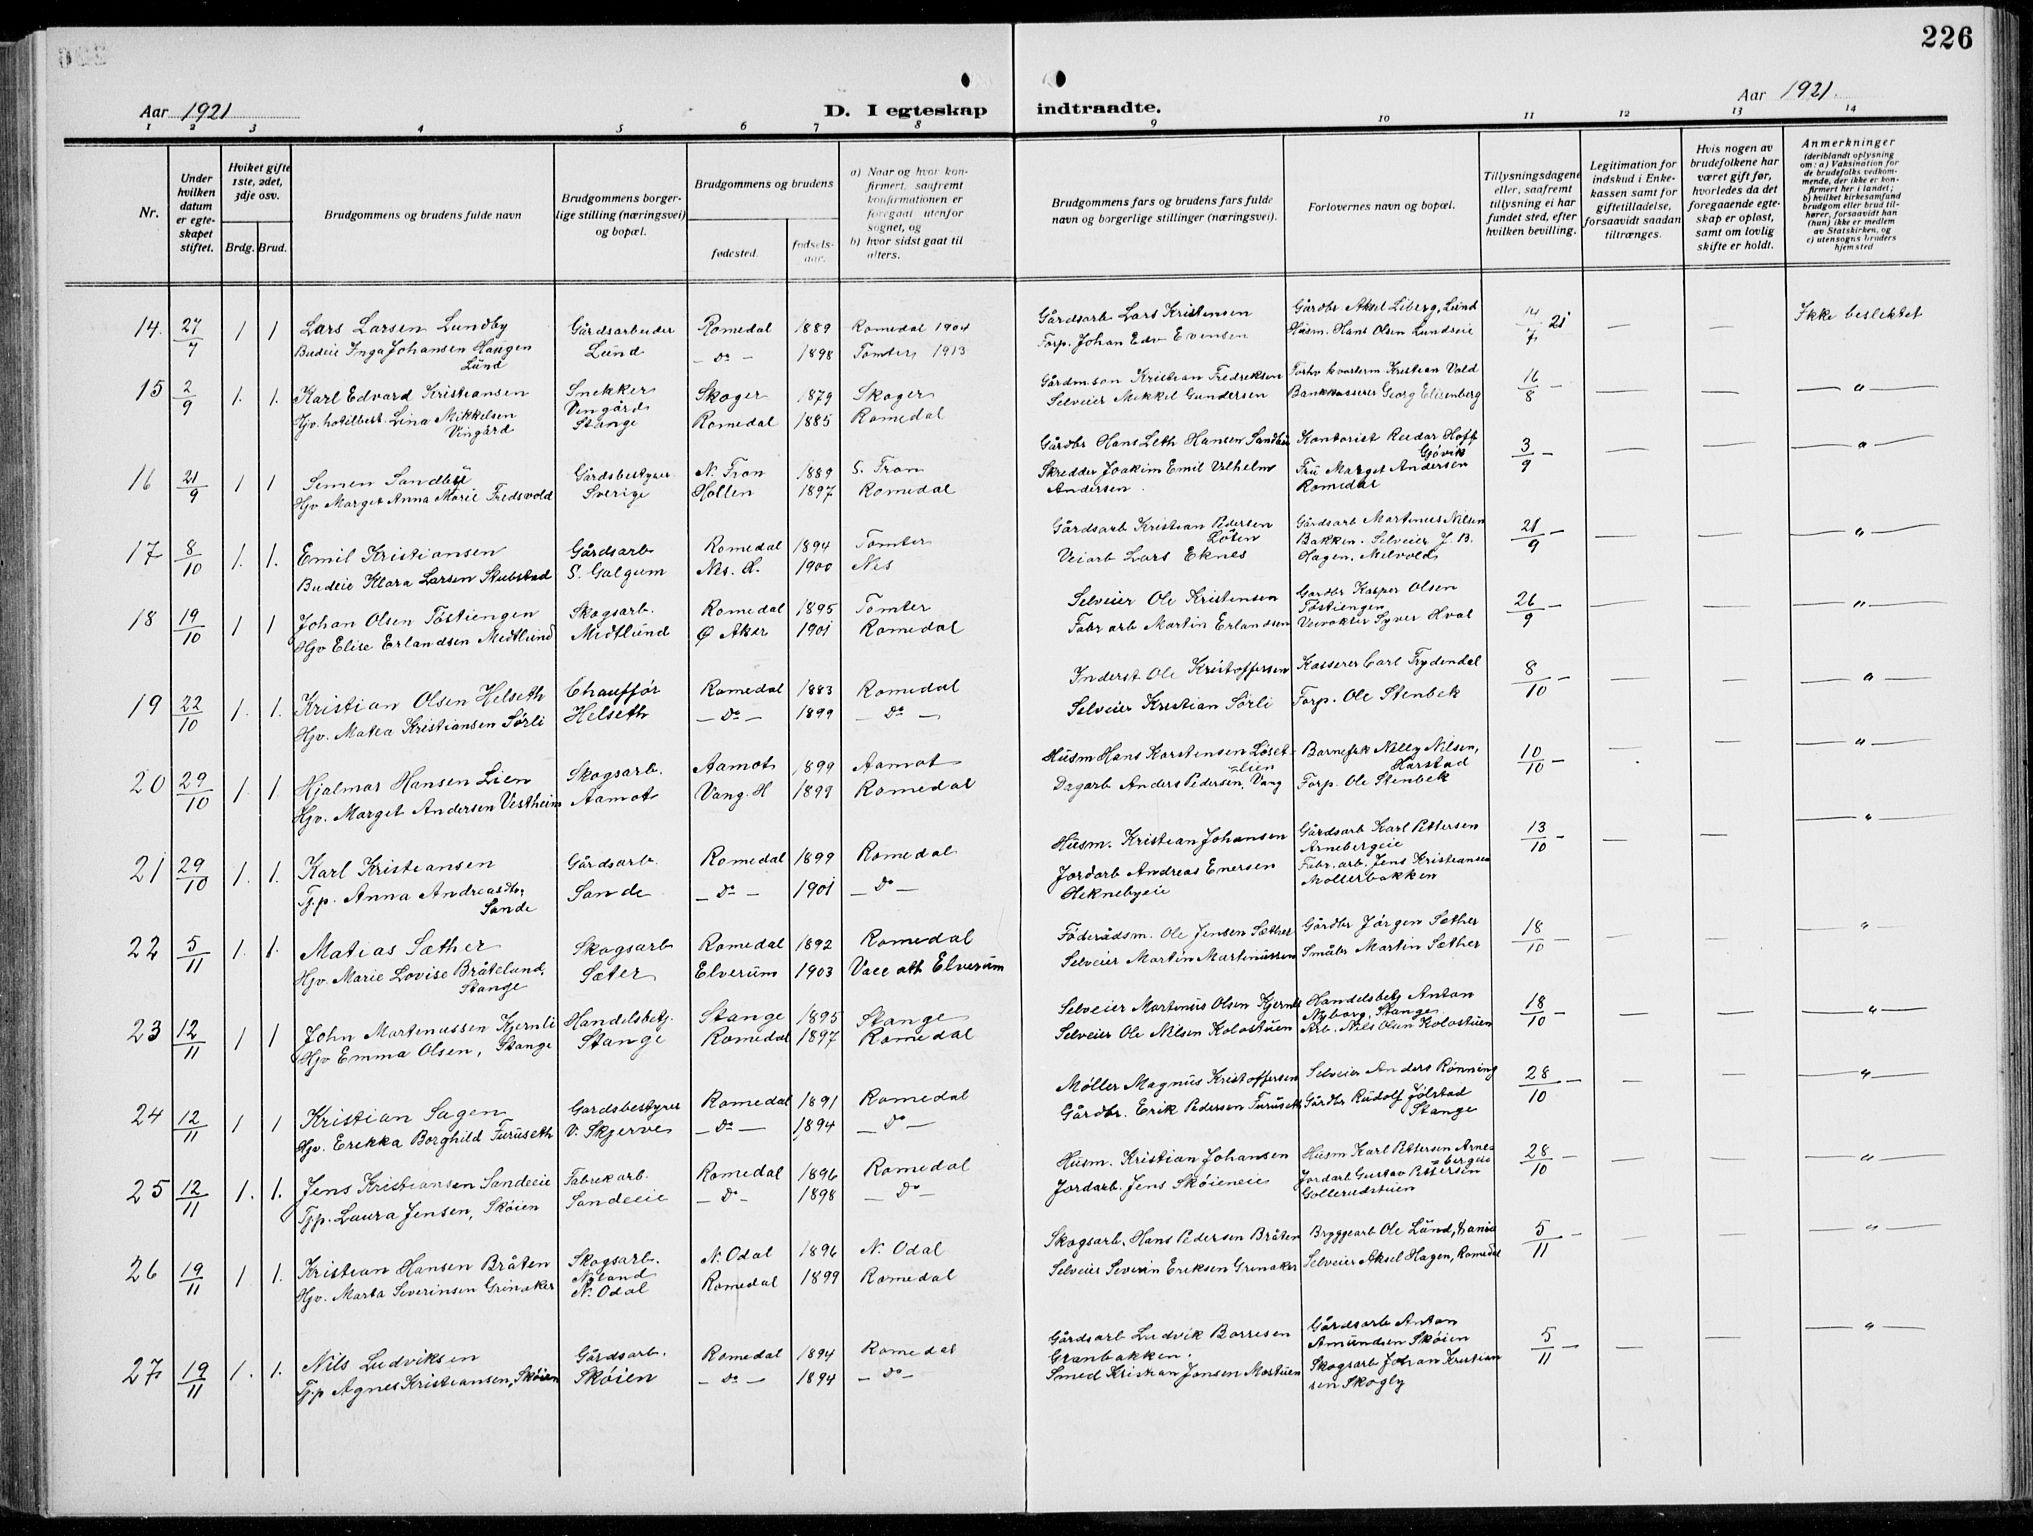 226
Aar 1921
D. I egteskap indtraadte.
Aar 1921.
1 2 3 4 5 6 7 8 9 10 11 12 13 14
Nr.
Under hvilken datum er egteskapet stiftet.
Hviket gifte 1ste, 2det, 3dje osv.
Brdg. Brud.
Brudgommens og brudens fulde navn
Brudgommens borgerlige stilling (næringsvei) og bopæl.
Brudgommens og brudens
fødested.
fødselsaar.
a) Naar og hvor konfirmert, saafremt konfirmationen er foregaat utenfor sognet, og
b) hvor sidst gaat til alters.
Brudgommens fars og brudens fars fulde navn og borgerlige stillinger (næringsvei).
Forlovernes navn og bopæl.
Tillysningsdagene eller, saafremt tillysning ei har fundet sted, efter hvilken bevilling.
Legitimation for indskud i Enkekassen samt for giftetilladelse, forsaavidt saadan tiltrænges.
Hvis nogen av brudefolkene har været gift før, hvorledes da det foregaaende egteskap er opløst, samt om lovlig skifte er holdt.
Anmerkninger
(deriblandt oplysning om: a) Vaksination for de brudefolks vedkommende, der ikke er konfirmert her i landet; b) hvilket kirkesamfund brudgom eller brud tilhører, forsaavidt han (hun) ikke er medlem av Statskirken, og c) utensogns bruders hjemsted
14. 27/7 1 1 Lars Larsen Lundby Gårdsarbeider Romedal 1889 Romedal 1904 Gårdsarb Lars Kristensen Gårdbr Aksel Liberg, Lund 14/7 21 — — Ikke beslektet
Budeie Inga Johansen Haugen Lund Lund — Do — 1898 Tomter 1913 Forp. Johan Edv Evensen Husm. Hans Olsen Lundseie
15 2/9 1. 1. Karl Edvard Kristiansen Snekker Skoger 1879 Skoger Gårdm.søn Kristian Fredriksen Kristian Vold 16/8 — — — — " —
Hjv. hotelbest. Lina Mikkelsen Vingård Vingård Stange Romedal 1885 Romedal Selveier Mikkel Gundersen Bankkasserer Georg Elisenberg
16 21/9 1 1 Simen Sandbu Gårdsbestyrer N. Fron 1889 S. Fron Gårdbr Hans Leth Hansen Sandbu Kontorist Reidar Hoff Gjøvik 3/9 — — — — " —
Hjv Marget Anna Marie Fredsvold Sverige Hollen 1897 Romedal Skredder Joakim Emil Vilhelm Andersen. Fru Marget Andersen Romedal
17 8/10 1. 1. Emil Kristiansen Gårdsarb Romedal 1894 Tomter Gårdsarb Kristian Pedersen Løten Gårdsarb Martinus Nilsen 21/9 — — — — " —
Budeie Klara Larsen Stubstad S. Galgum Nes. H. 1900 Nes Veiarb Lars Eknes Bakken. Selveier J. B. Hagen. Melvold
18 19/10 1 1 Johan Olsen Tøstiengen Skogsarb. Romedal 1895 Tomter Selveier Ole Kristensen Gardbr Kasper Olsen Tøstiengen 26/9 — — — — " —
Hjv Elise Erlandsen Midtlund Midtlund Ø Aker 1901 Romedal Fabr arb Martin Erlandsen Veivokter Syver Hval
19 22/10 1. 1. Kristian Olsen Helseth Chauffør Romedal 1883 Romedal Inderst Ole Kristoffersen Kasserer Carl Frydendal 8/10 — — — — " —
Hjv. Matea Kristiansen Sørli Helseth — Do — 1899 — Do — Selveier Kristian Sørli Forp. Ole Stenbek
20 29/10 1. 1. Hjalmar Hansen Lien Skogsarb. Aamot 1899 Aamot Husm Hans Karstensen Løsetlien Barnefrk Nelly Nilsen, Harstad 10/10 — — — — " —
Hjv. Marget Andersen Vestheim Aamot Vang. H 1899 Romedal Dagarb Anders Pedersen, Vang Forp. Ole Stenbek
21 29/10 1. 1. Karl Kristiansen Gårdsarb. Romedal 1899 Romedal Husm. Kristian Johansen Gårdsarb Karl Pettersen Arnebergeie 13/10 — — — — " —
Tj.p. Anna Andreasdtr, Sande Sande — Do — 1901 — Do — Jordarb Andreas Enersen Oleknebyeie Fabr. arb. Jens Kristiansen Møllerbakken
22 5/11 1. 1. Matias Sæther Skogsarb Romedal 1892 Romedal Føderådsm. Ole Jensen Sæther Gårdbr Jørgen Sæther 18/10 — — — — " —
Hjv. Marie Lovise Bråtelund, Stange Sæter Elverum 1903 Vacc att Elverum Selveier Martin Martinussen Småbr Martin Sæther
23 12/11 1 1 John Martinussen Kjernli Handelsbetj. Stange 1895 Stange Selveier Martinus Olsen Kjernli Handelsbetj Anton Nyborg, Stange 18/10 — — — — " —
Hjv Emma Olsen, Stange Stange Romedal 1897 Romedal Selveier Ole Nilsen Kolostuen Arb. Nils Olsen Kolostuen
24 12/11 1 1 Kristian Sagen Gardsbestyrer Romedal 1891 Romedal Møller Magnus Kristoffersen Selveier Anders Rønning 28/10 — — — — " —
Hjv. Erikka Borghild Furuseth V. Skjerve — Do — 1894 — Do — Gårdbr. Erik Pedersen Furuseth Gårdbr Rudolf Jølstad Stange
25 12/11 1. 1. Jens Kristiansen Sandeeie Fabrekarb. Romedal 1896 Romedal Husm. Kristian Johansen Husm Karl Pettersen Arnebergeie 28/10 — — — — " —
Tjp. Laura Jensen, Skøien Sandeeie — Do — 1898 — Do — Jordarb. Jens Skøieneie Jordarb Gustav Pettersen Gollerudstuen
26 19/11 1 1. Kristian Hansen Bråten Skogsarb. N. Odal 1896 N. Odal Skogsarb. Hans Pedersen Bråten Bryggearb Ole Lund, Kr.ania 5/11 — — — — " —
Hjv. Marta Severinsen Grinaker Nyland N. Odal Romedal 1899 Romedal Selveier Severin Eriksen Grinaker Selveier Aksel Hagen, Romedal
27 19/11 1. 1. Nils Ludviksen Gårdsarb. Romedal 1894 Romedal Gårdsarb Ludvik Borresen Granbakken. Gårdsarb Anton Amundsen Skøien 5/11 — — — — " —
Tj.p Agnes Kristiansen, Skøien Skøien — Do — 1894 — Do — Smed Kristian Jonsen Mostuen Skogsarb Johan Kristiansen Skogly